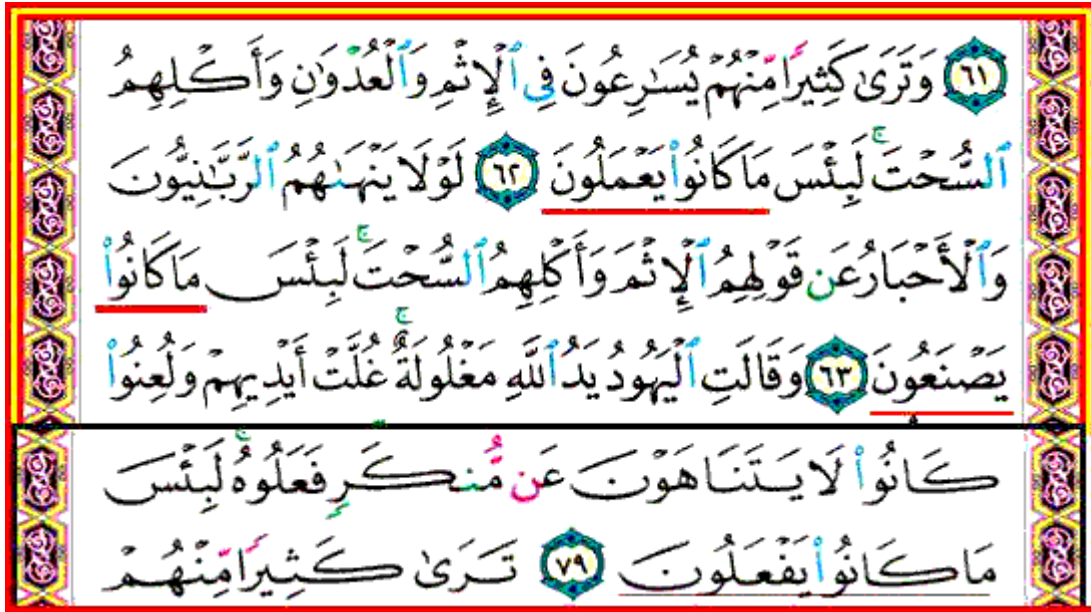 ٦١ وَتَرَىٰ كَثِيرًا مِّنْهُمْ يُسَٰرِعُونَ فِى ٱلْإِثْمِ وَٱلْعُدْوَٰنِ وَأَكْلِهِمُ
ٱلسُّحْتَ ۚ لَبِئْسَ مَا كَانُوا۟ يَعْمَلُونَ ٦٢ لَوْلَا يَنْهَىٰهُمُ ٱلرَّبَّٰنِيُّونَ
وَٱلْأَحْبَارُ عَن قَوْلِهِمُ ٱلْإِثْمَ وَأَكْلِهِمُ ٱلسُّحْتَ ۚ لَبِئْسَ مَا كَانُوا۟
يَصْنَعُونَ ٦٣ وَقَالَتِ ٱلْيَهُودُ يَدُ ٱللَّهِ مَغْلُولَةٌ ۚ غُلَّتْ أَيْدِيهِمْ وَلُعِنُوا۟
كَانُوا۟ لَا يَتَنَاهَوْنَ عَن مُّنكَرٍ فَعَلُوهُ ۚ لَبِئْسَ
مَا كَانُوا۟ يَفْعَلُونَ ٧٩ تَرَىٰ كَثِيرًا مِّنْهُمْ